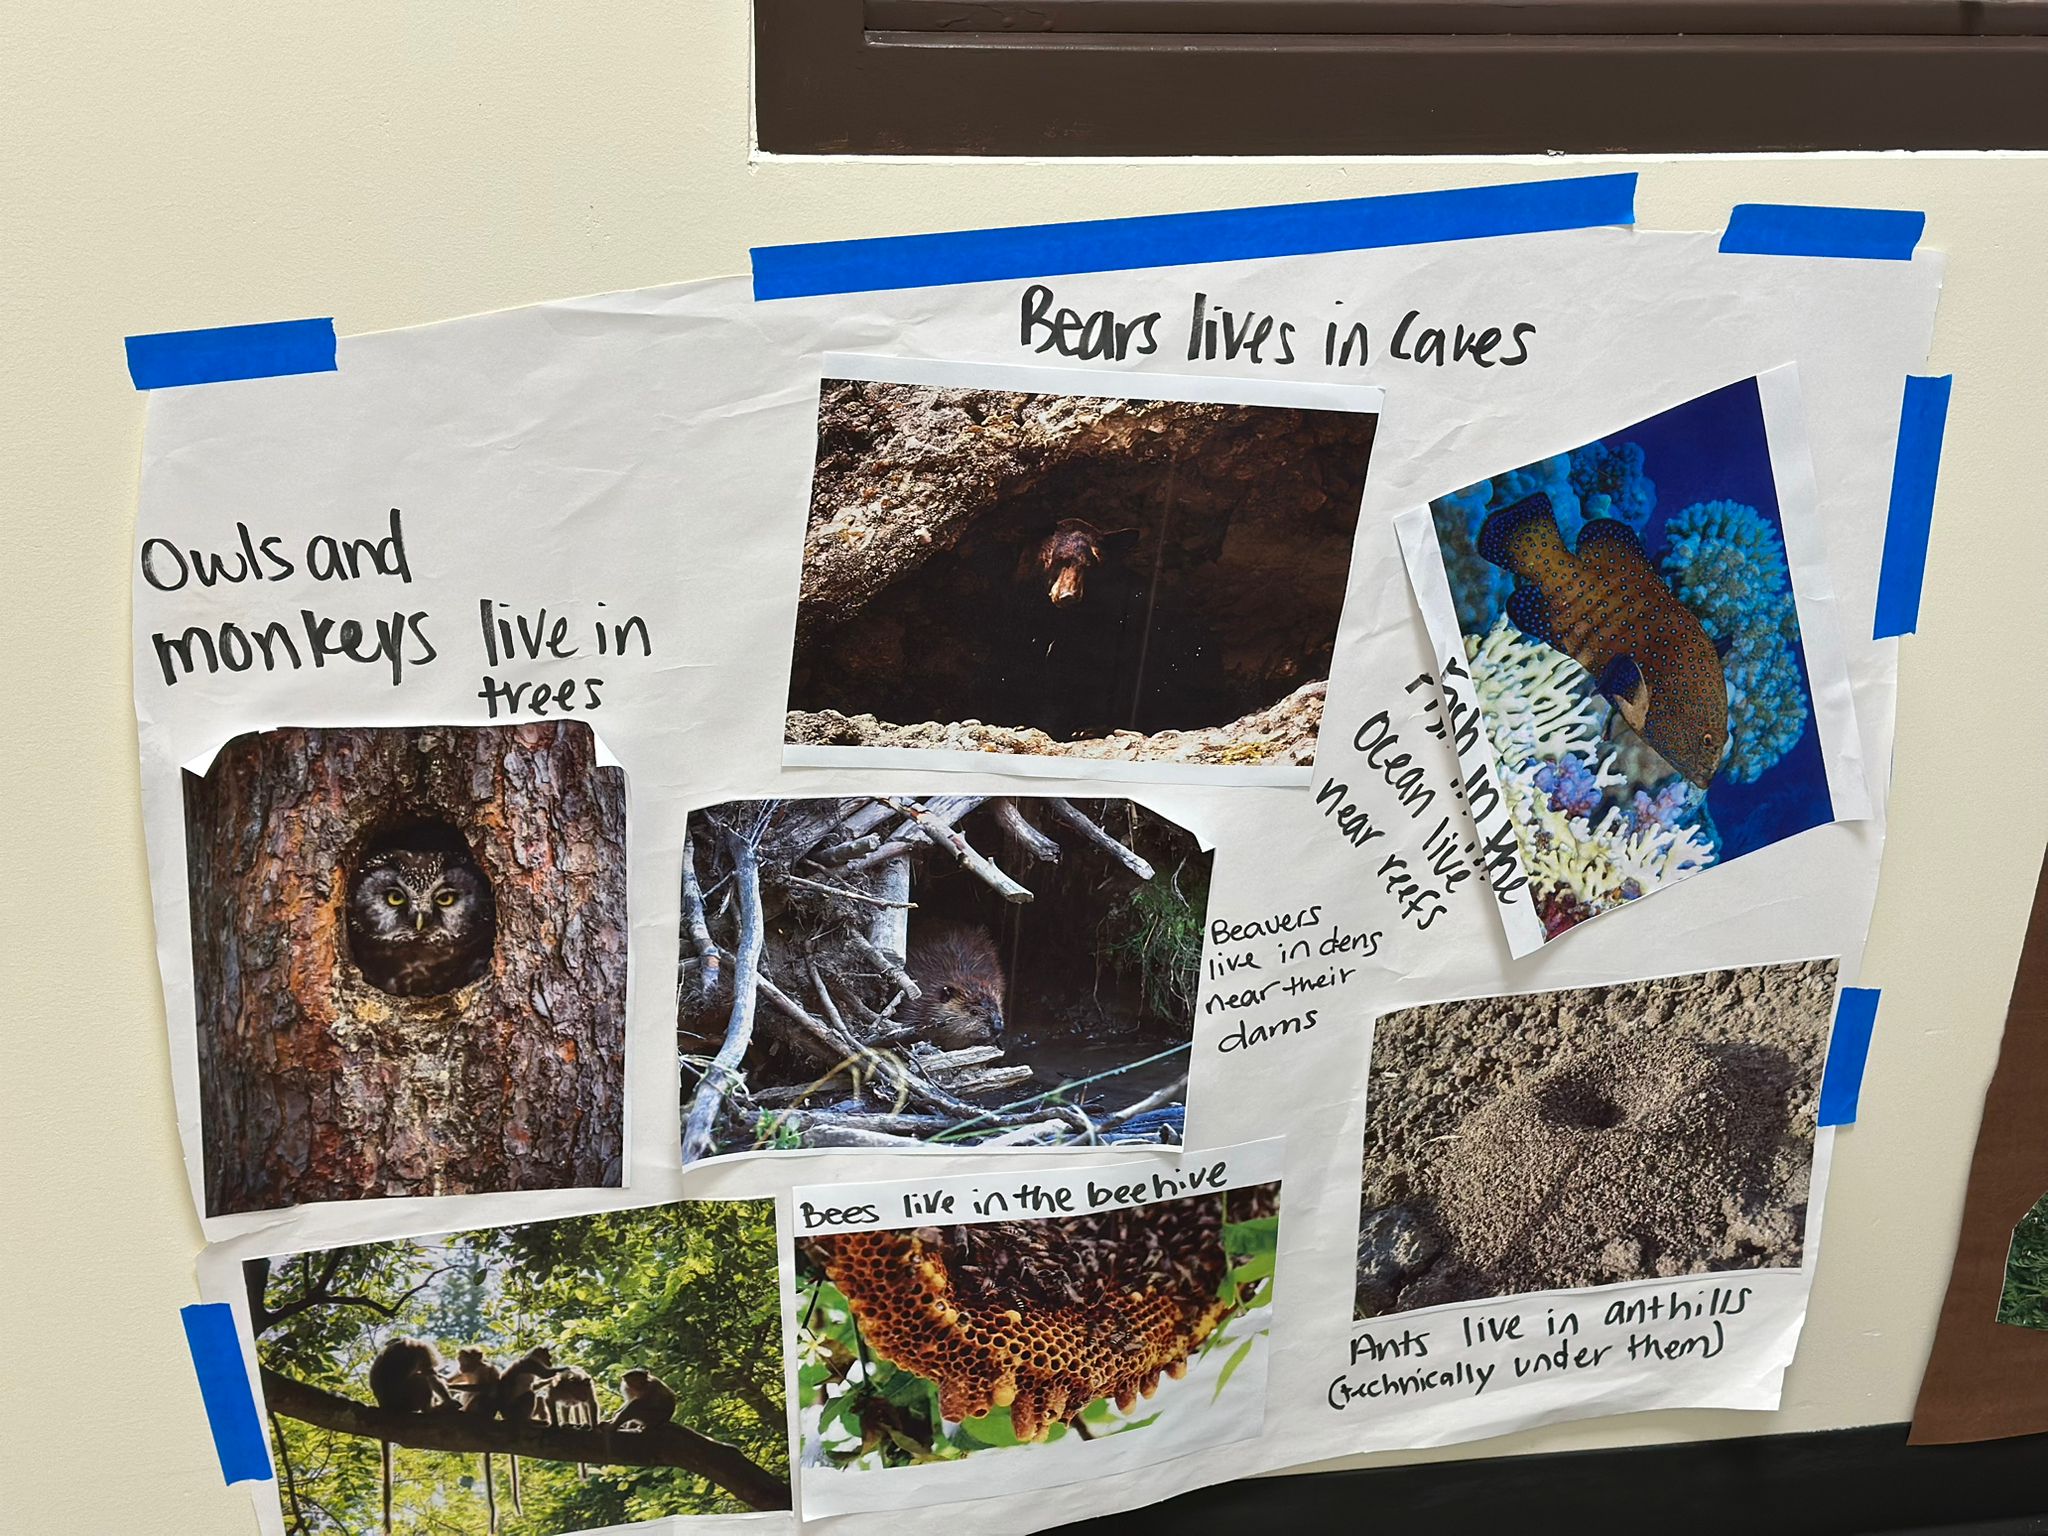 Bears lives in caves
Owls and
monkeys live in
trees
Fish in the
Ocean live
near reefs
Beavers
live in dens
near their
dams
Bees live in the beehive
Ants live in anthills
(technically under them)